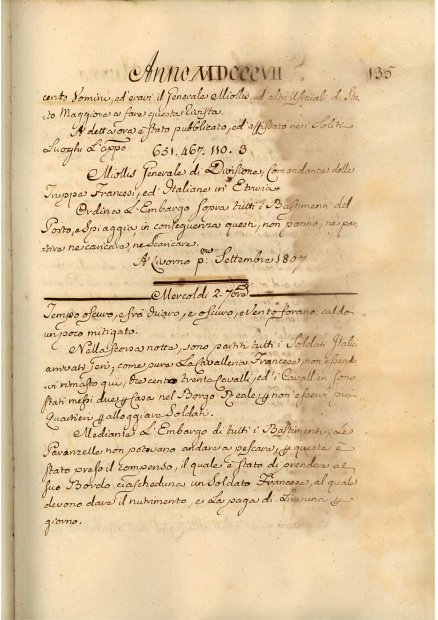 Anno MDCCCVII 135
cento Uomini, ed'eravi il Generale Miollis, ed'altri Ufficiali di Sta
to Maggiore a fare questa Rivista.
A dett'a ora è stato pubblicato, ed'affissato nei Soliti
Luoghi L'appo. 651. 467. 110. 3
Miollis Generale di Divisione, Comandante delle
Truppe Francesi, ed Italiane in Etruria
Ordina L'Embargo sopra tutti i Bastimenti del
Porto, e Spiaggia in conseguenza questi, non ponno, ne par
tire ne caricare, ne Scaricare.
A Livorno pmo. Settembre 1807
Mercoldi 2. 7bre
Tempo oscuro, e frà duaro, e oscuro, e Vento forano: caldo
un poco mitigato.
Nella scorsa notte, sono partiti tutti i Soldati Itale
arrivati Jeri, come pure La Cavalleria Francese non essendo
vi rimasto qui, che cento trenta Cavalli, ed'i Cavallieri sono
stati messi due p Casa nel Borgo Reale p non'esservi più
Quartieri p alloggiare Soldati.
Mediante L'Embargo di tutti i Bastimenti, Le
Paranzelle non potevano andare a pescare, p questa è
stato preso il compenso, il quale è stato di prendere al
suo Bordo ciascheduna un Soldato Francese, al quale
devono dare il nutrimento, e La paga di Lire una p
giorno.